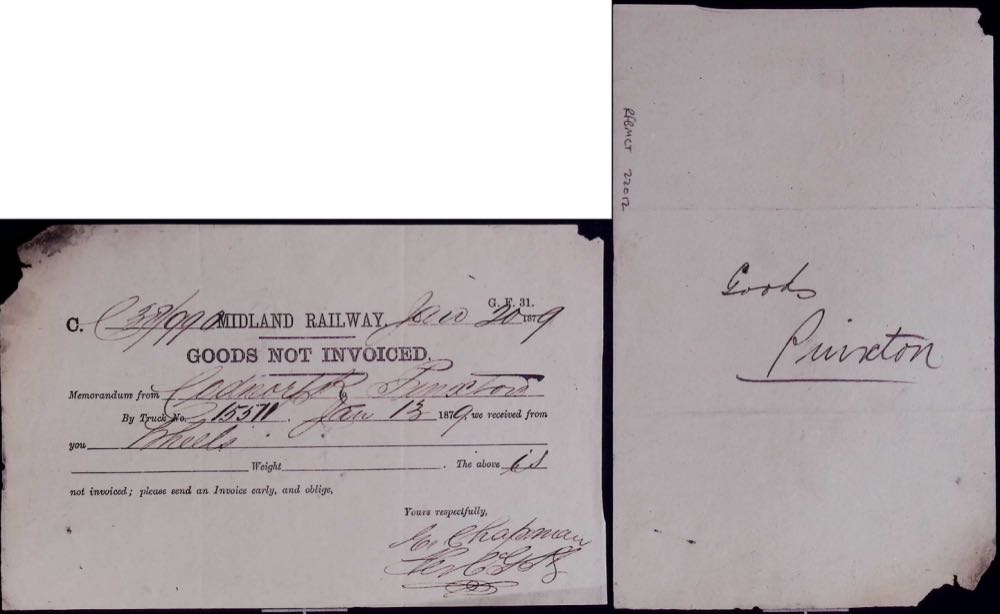 G. F. 31.
C. C 38/990 MIDLAND RAILWAY. Jan 20 1879
GOODS NOT INVOICED.
Memorandum from Cudworth to Pinxton
By Truck No. 15571. Jan 13 1879, we received from
you Wheels
Weight . The above is
not invoiced; please send an Invoice early, and oblige,
Yours respectfully,
Chapman
RFBMCT 22012
Goods
Pinxton